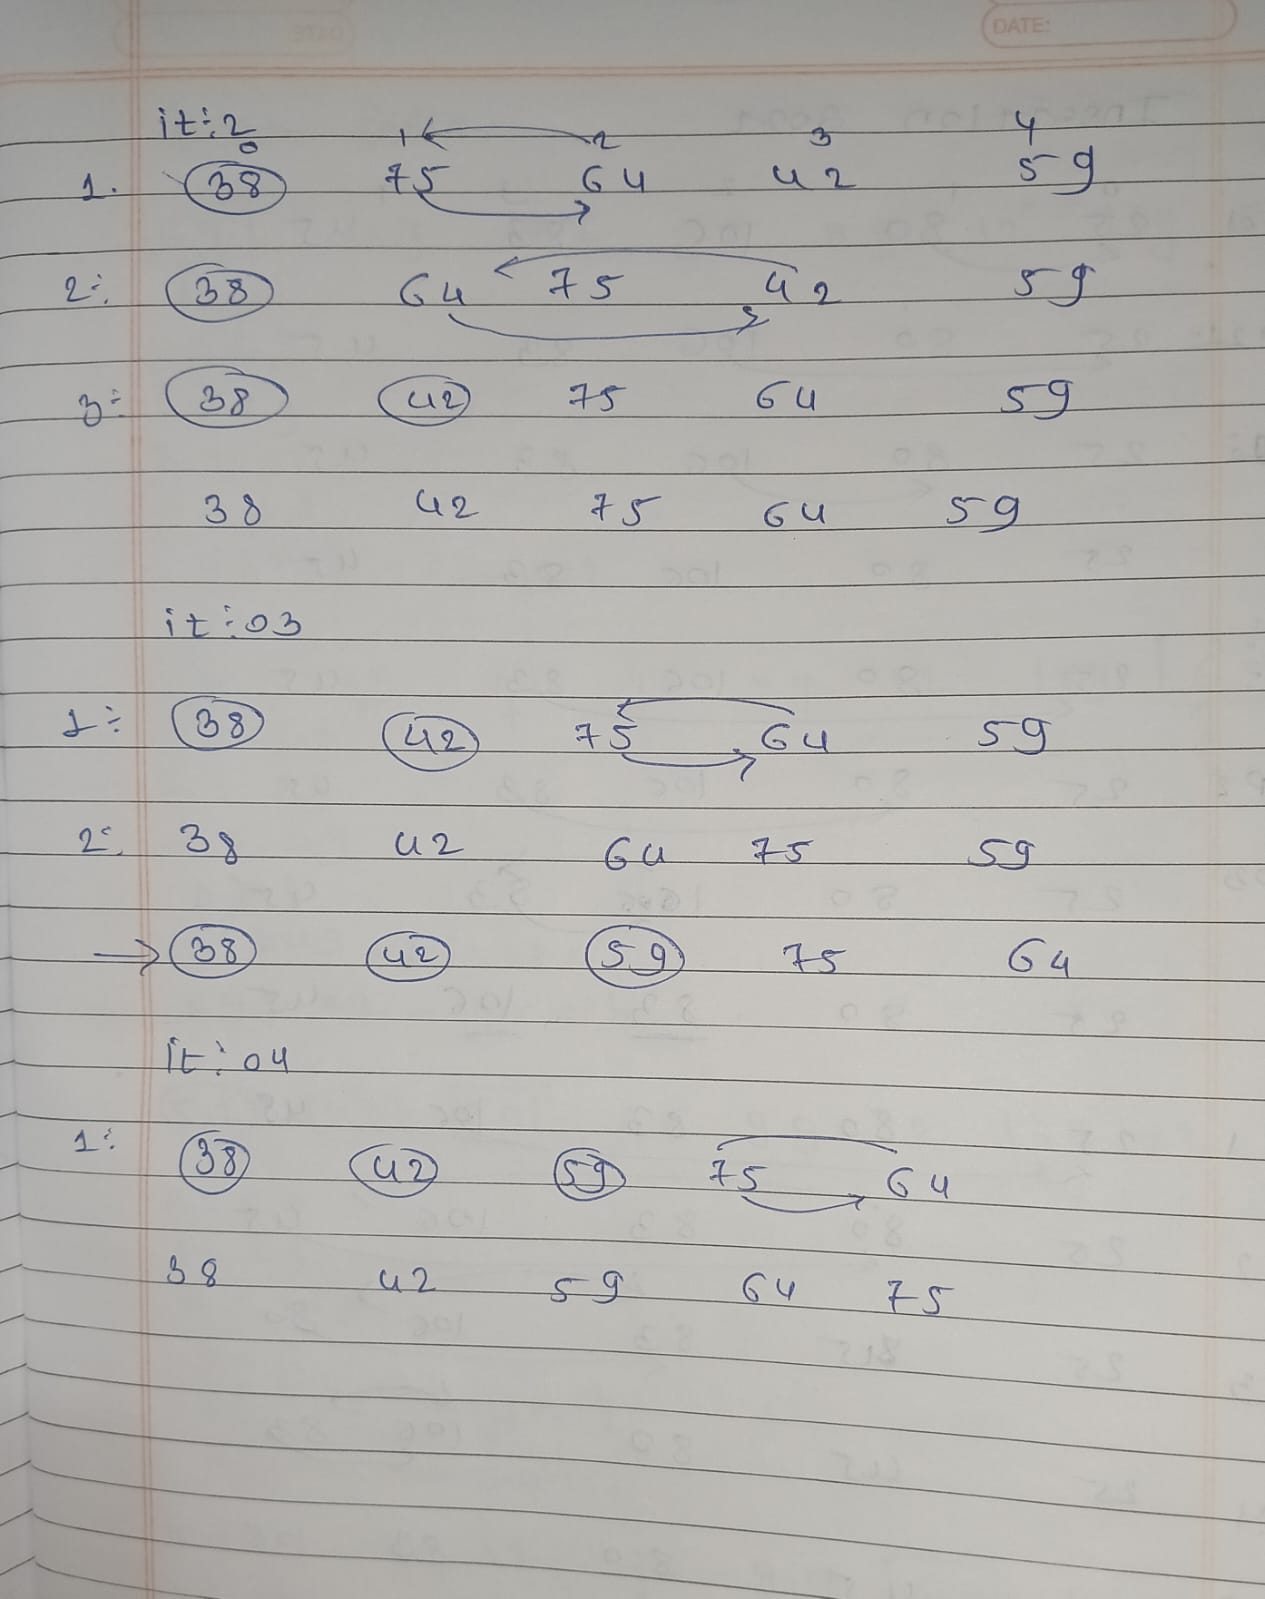 DATE:
it÷2
0 1 2 3 4
1. 38 75 64 42 59
2÷ 38 64 75 42 59
3÷ 38 42 75 64 59
38 42 75 64 59
it÷03
1÷ 38 42 75 64 59
2÷ 38 42 64 75 59
→ 38 42 59 75 64
it÷04
1÷ 38 42 59 75 64
38 42 59 64 75